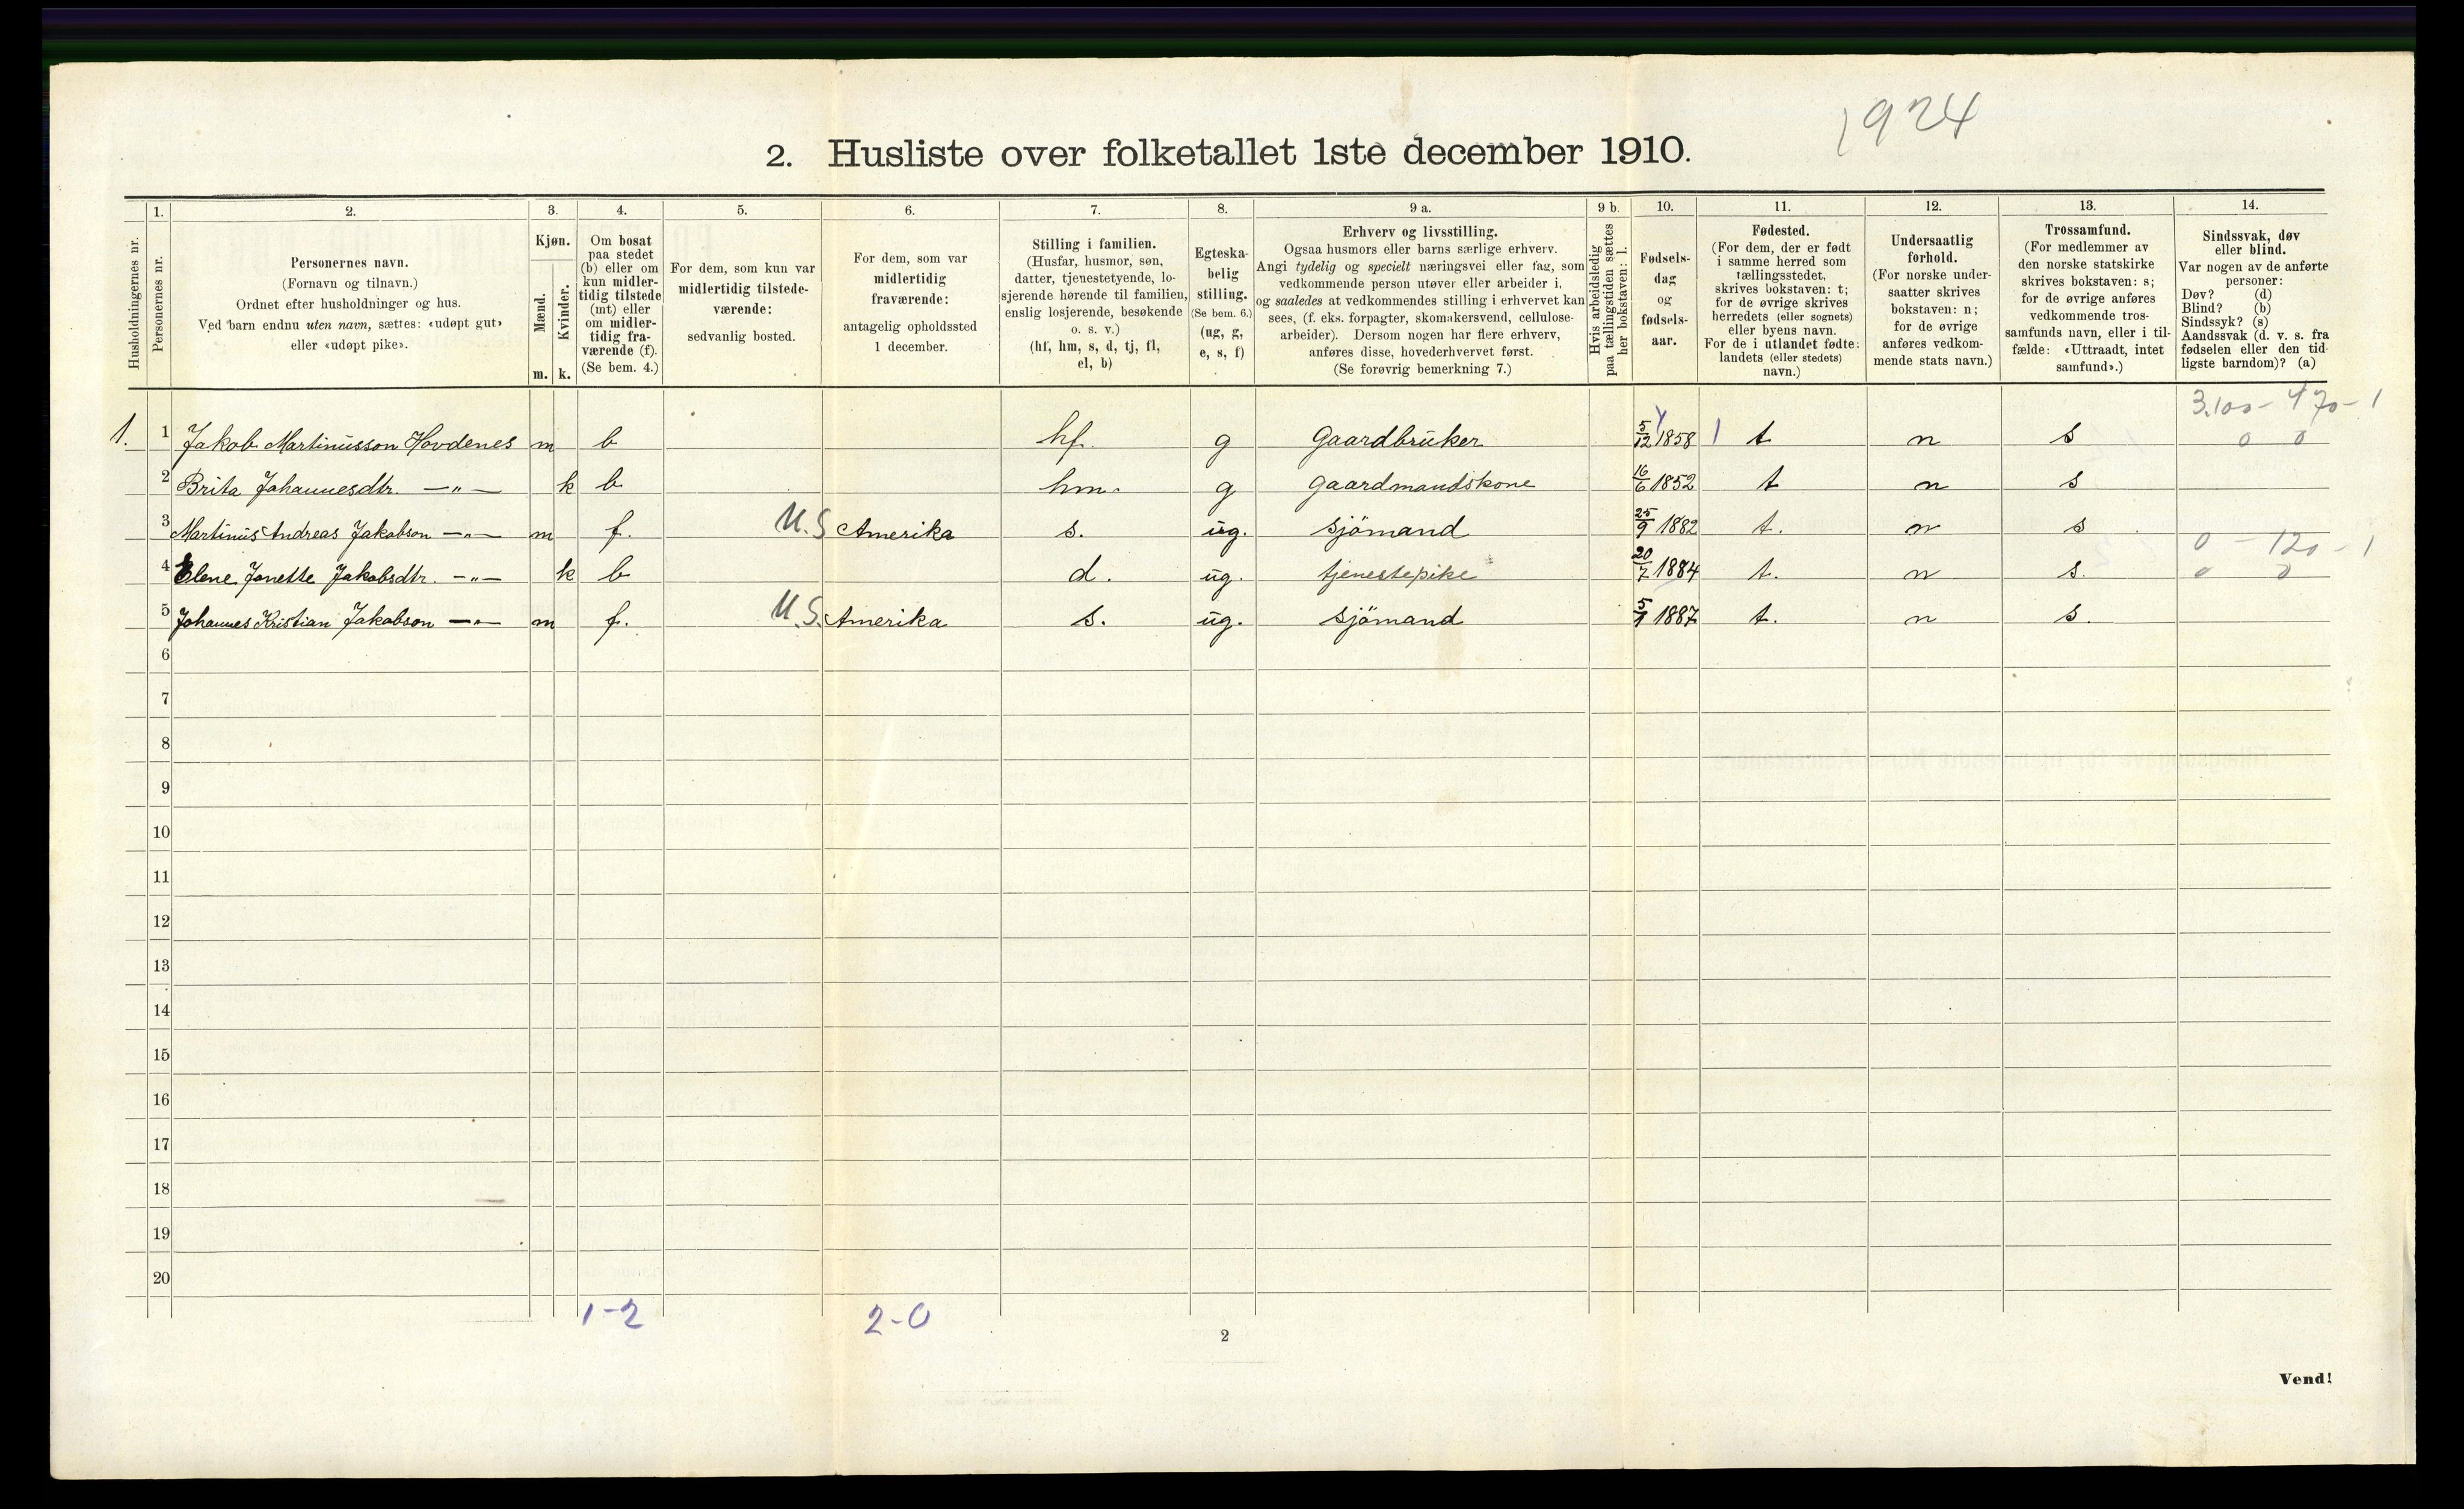 1924
2. Husliste over folketallet 1ste december 1910.
Husholdningernes nr.
1.
Personernes nr.
2.
Personernes navn.
(Fornavn og tilnavn.)
Ordnet efter husholdninger og hus.
Ved barn endnu uten navn, sættes: «udøpt gut»
eller «udøpt pike».
3.
Kjøn.
Mænd.
Kvinder.
m. k.
4.
Om bosat
paa stedet
(b) eller om
kun midler-
tidig tilstede
(mt) eller
om midler-
tidig fra-
værende (f).
(Se bem. 4.)
5.
For dem, som kun var
midlertidig tilstede-
værende:
sedvanlig bosted.
6.
For dem, som var
midlertidig
fraværende:
antagelig opholdssted
1 december.
7.
Stilling i familien.
(Husfar, husmor, søn,
datter, tjenestetyende, lo-
sjerende hørende til familien,
enslig losjerende, besøkende
o. s. v.)
(hf, hm, s, d, tj, fl,
el, b)
8.
Egteska-
belig
stilling.
(Se bem. 6.)
(ug, g,
e, s, f)
9 a.
Erhverv og livsstilling.
Ogsaa husmors eller barns særlige erhverv.
Angi tydelig og specielt næringsvei eller fag, som
vedkommende person utøver eller arbeider i,
og saaledes at vedkommendes stilling i erhvervet kan
sees, (f. eks. forpagter, skomakersvend, cellulose-
arbeider). Dersom nogen har flere erhverv,
anføres disse, hovederhvervet først.
(Se forøvrig bemerkning 7.)
9 b.
Hvis arbeidsledig
paa tællingstiden sættes
her bokstaven: l.
10.
Fødsels-
dag
og
fødsels-
aar.
11.
Fødested.
(For dem, der er født
i samme herred som
tællingsstedet,
skrives bokstaven: t;
for de øvrige skrives
herredets (eller sognets)
eller byens navn.
For de i utlandet fødte:
landets (eller stedets)
navn.)
12.
Undersaatlig
forhold.
(For norske under-
saatter skrives
bokstaven: n;
for de øvrige
anføres vedkom-
mende stats navn.)
13.
Trossamfund.
(For medlemmer av
den norske statskirke
skrives bokstaven: s;
for de øvrige anføres
vedkommende tros-
samfunds navn, eller i til-
fælde: «Uttraadt, intet
samfund».)
14.
Sindssvak, døv
eller blind.
Var nogen av de anførte
personer:
Døv? (d)
Blind? (b)
Sindssyk? (s)
Aandssvak (d. v. s. fra
fødselen eller den tid-
ligste barndom)? (a)
3.100 - 470 - 1
1. 1 Jakob Martinusson Hovdenes m b hf. g Gaardbruker 5/12 1858 1 t n s 0 0
2 Brita Johannesdtr. —"— k b hm. g Gaardmandskone 16/6 1852 t n s
3 Martinus Andreas Jakobson —"— m f. U.S Amerika s. ug. sjömand 25/9 1882 t. n s
0 - 120 - 1
4 Elene Jonette Jakobsdtr. —"— k b d. ug. tjenestepike 20/7 1884 t. n s. 0 0
5 Johannes Kristian Jakobson —"— m f. U.S. Amerika s. ug. sjömand 5/1 1887 t. n s.
6
7
8
9
10
11
12
13
14
15
16
17
18
19
20
1-2 2-0
2
Vend!